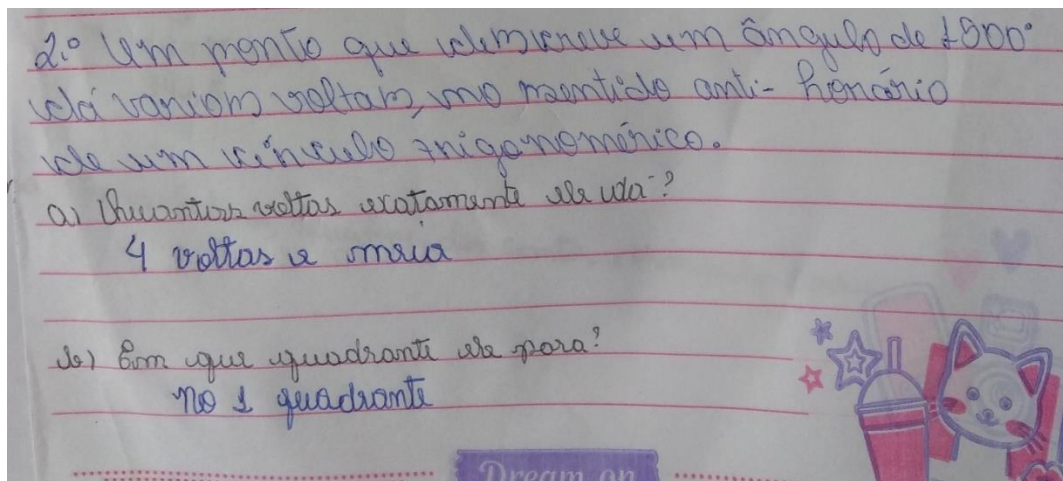 2.º Um ponto que descreve um ângulo de 1500°
dá varias voltas, no sentido anti-horário
de um círculo trigonomérico.
a) Quantas voltas exatamente ele da?
4 voltas e meia
b) Em que quadrante ele para?
no 1 quadrante
Dream on